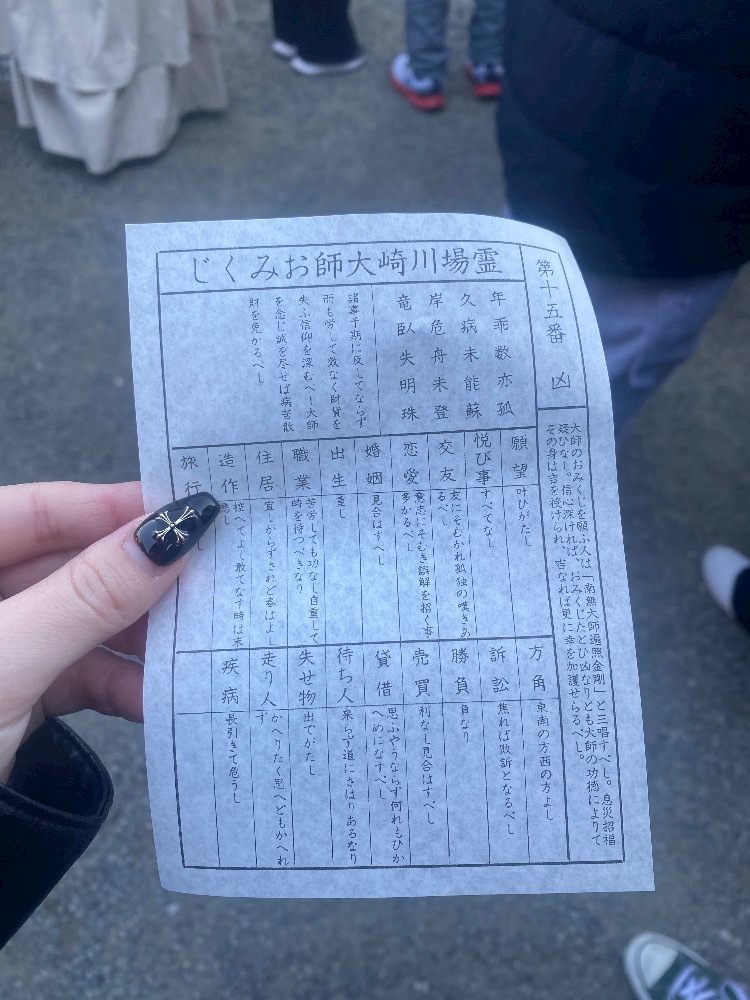 霊場川崎大師おみくじ
第十五番 凶
大師のおみくじを願ふ人は「南無大師遍照金剛」と三唱すべし。息災招福
疑ひなし。信心深ければ、おみくじたとひ凶なりとも大師の功徳によりて
その身は吉を授けられ、吉なれば更に幸を加護せらるべし。
年乖数亦孤
久病未能蘇
岸危舟未登
竜臥失明珠
諸事予期に反してならず
而も労して效なく財貨を
失ふ信仰を深むべし大師
を念じ誠を尽せば病苦散
財を免かるべし
願望
叶ひがたし
悦び事
すべてなし
交友
友にそむかれ孤独の嘆きあ
るべし
恋愛
意志にそむき誤解を招く事
多かるべし
婚姻
見合はすべし
出生
重し
職業
苦労しても功なし自重して
時を待つべきなり
住居
宜しからずされど春はよし
造作
控へてよく敢てなす時は末
悪し
旅行
し
方角
東南の方西の方よし
訴訟
焦れば敗訴となるべし
勝負
負なり
売買
利なし見合はすべし
貸借
思ふやうならず何れもひか
へめになすべし
待ち人
来らず道にさはりあるなり
失せ物
出でがたし
走り人
かへりたく思へどもかへれ
ず
疾病
長引きて危うし